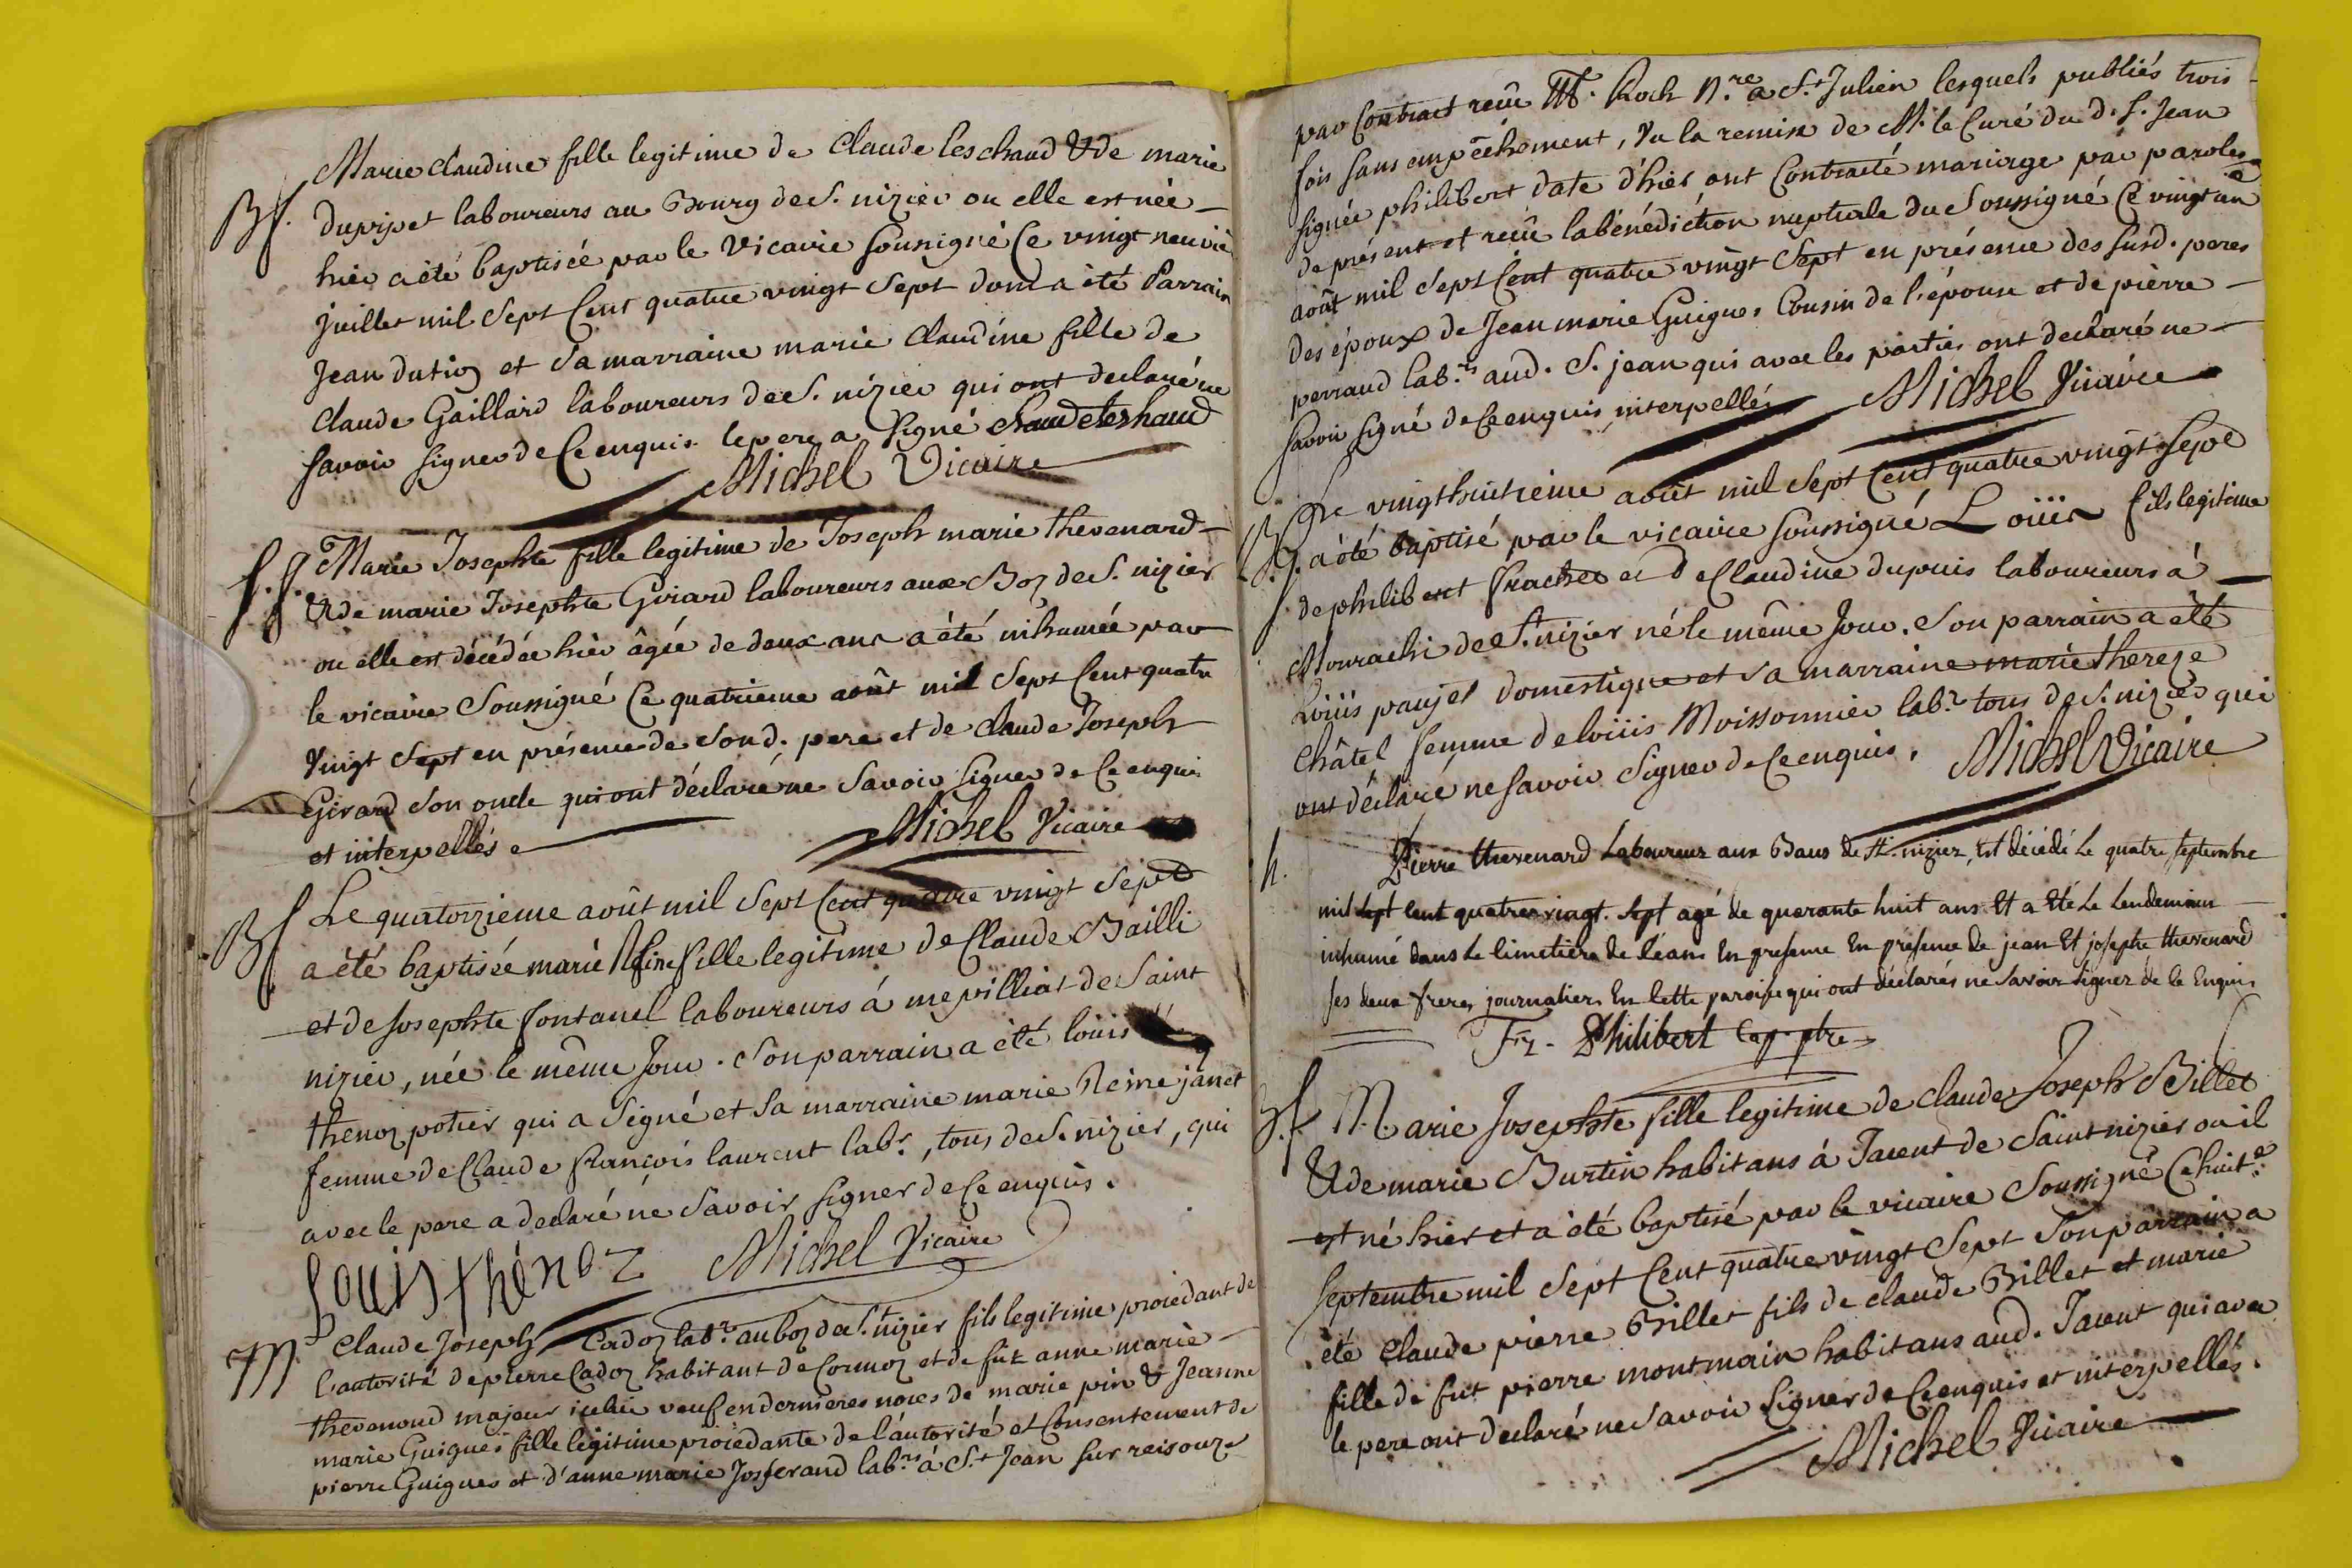 Marie Claudine fille legitime de Claude leschaud & de marie
Bf. dupupet laboureurs au Bourg de S. nizier ou elle est née
hier a été baptisée par le vicaire soussigné Ce vingt neuvie
juillet mil Sept Cent quatre vingt Sept dont a été Parrain
Jean dutioz et Sa marraine marie Claudine fille de
Claude Gaillard laboureurs de S. nizier qui ont declaré ne
savoir signer de Ce enquis. le pere a signé
Michel Vicaire
f.f. Marie Josephte fille legitime de Joseph marie thevenard
& de marie Josephte Girard laboureurs aux Boz de S. nizier
ou elle est décédée hier âgée de deux ans a été inhumée par
le vicaire Soussigné Ce quatrieme août mil Sept Cent quatre
Vingt Sept en présence de Son d. pere et de Claude Joseph
Girard Son oncle qui ont déclaré ne Savoir signer de Ce enquis
et interpellés
Michel Vicaire
Bf Le quatorzieme août mil Sept Cent quatre vingt Sept
a été baptisée marie fille legitime de Claude Bailli
et de Josephte fontanel laboureurs á mepilliat de Saint
nizier, née le même Jour. Son parrain a été louis
thenoz potier qui a Signé et Sa marraine marie Reine janet
femme de Claude francois laurent labr., tous de S. nizier, qui
avec le pere a declaré ne Savoir signer de Ce enquis.
Louis thénoz Michel Vicaire
M Claude Joseph Cadoz labr. au boz de St. nizier fils legitime procédant de
l'autorité de pierre Cadoz habitant de Cormoz et de fut anne marie
thevenoud majeur veuf en dernieres noces de marie pin & Jeanne
marie Guigues fille legitime procedante de l'autorité et Consentement de
pierre Guigues et d'anne marie Josserand labrs. á St. Jean sur reisouze
par Contract reçu M. Roch N.re a St. Julien lesquels publiés trois
fois sans empêchement, Vu la remise de M. le Curé du d. S. Jean
signée philibert date d'hier ont Contracté mariage par paroles
de présent et reçu la bénédiction nuptiale du Soussigné Ce vingt un
août mil Sept Cent quatre vingt Sept en présence des Susd. peres
des époux de Jean marie Guigues Cousin de l'épouse et de pierre
perraud labrs. aud. S. jean qui avec les parties ont declaré ne
savoir signé de Ce enquis, interpellés Michel Vicaire
Le vingthuitieme août mil Sept Cent quatre vingt Sept
B.f. a été baptisé par le vicaire soussigné Loüis fils legitime
de philibert frachet et de Claudine dupuis laboureurs à
Mourachi de S. nizier né le même Jour. Son parrain a été
Loüis paujet domestique et Sa marraine marie thereze
Châtel femme de loüis Moissonnier labr. tous de S. nizier qui
ont déclaré ne savoir Signer de Ce enquis. Michel Vicaire
h. Pierre thevenard Laboureur aux Baus de St. nizier, Est décédé Le quatre septembre
mil Sept cent quatre vingt. Sept agé de quarante huit ans Et a Eté Le Lendemain
inhumé dans Le cimetiere de Céans En presence En présence de jean Et josephe thevenard
ses deux freres journaliers En Cette paroisse qui ont déclarés ne Savoir signer de Ce Enquis
Frz. Philibert Cap. ptre
B.f Marie Josephte fille legitime de Claude Joseph Billet
& de marie Burtin habitans á Tavent de Saint nizier ou il
est né hier et a été baptisé par le vicaire Soussigné Ce huit.e
Septembre mil Sept Cent quatre vingt Sept Son parrain a
été Claude pierre Billet fils de Claude Billet et marie
fille de fut pierre montmain habitans aud. Tavent qui avec
le pere ont declaré ne Savoir signer de Ce enquis et interpellés.
Michel Vicaire